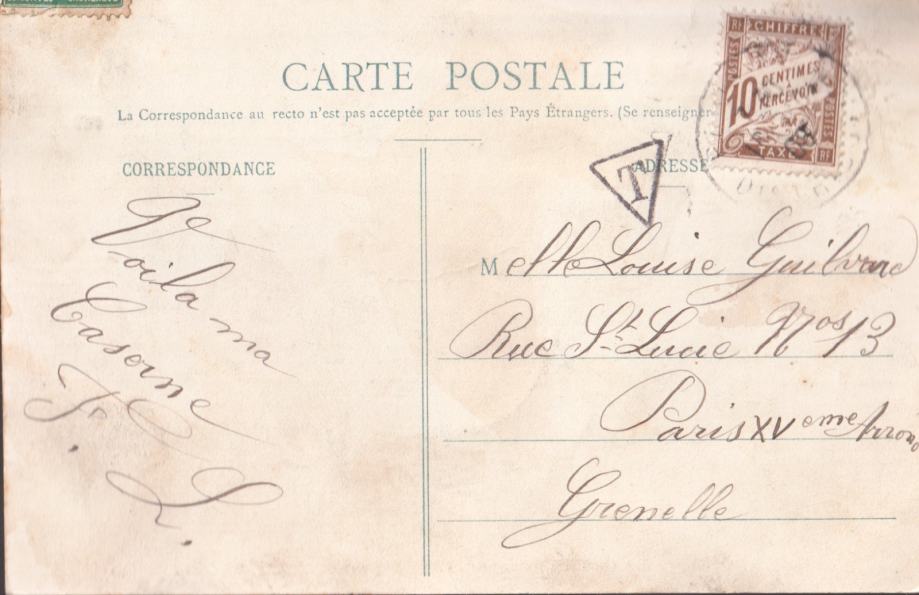 CARTE POSTALE
La Correspondance au recto n'est pas acceptée par tous les Pays Étrangers. (Se renseigner
CORRESPONDANCE
Voila ma
Caserne
J. L.
CHIFFRE
POSTES
10 CENTIMES
A PERCEVOIR
TAXE
RF
T
ADRESSE
Melle Louise
Rue St. Lucie Nos 13
Paris XVeme Arrond
Grenelle